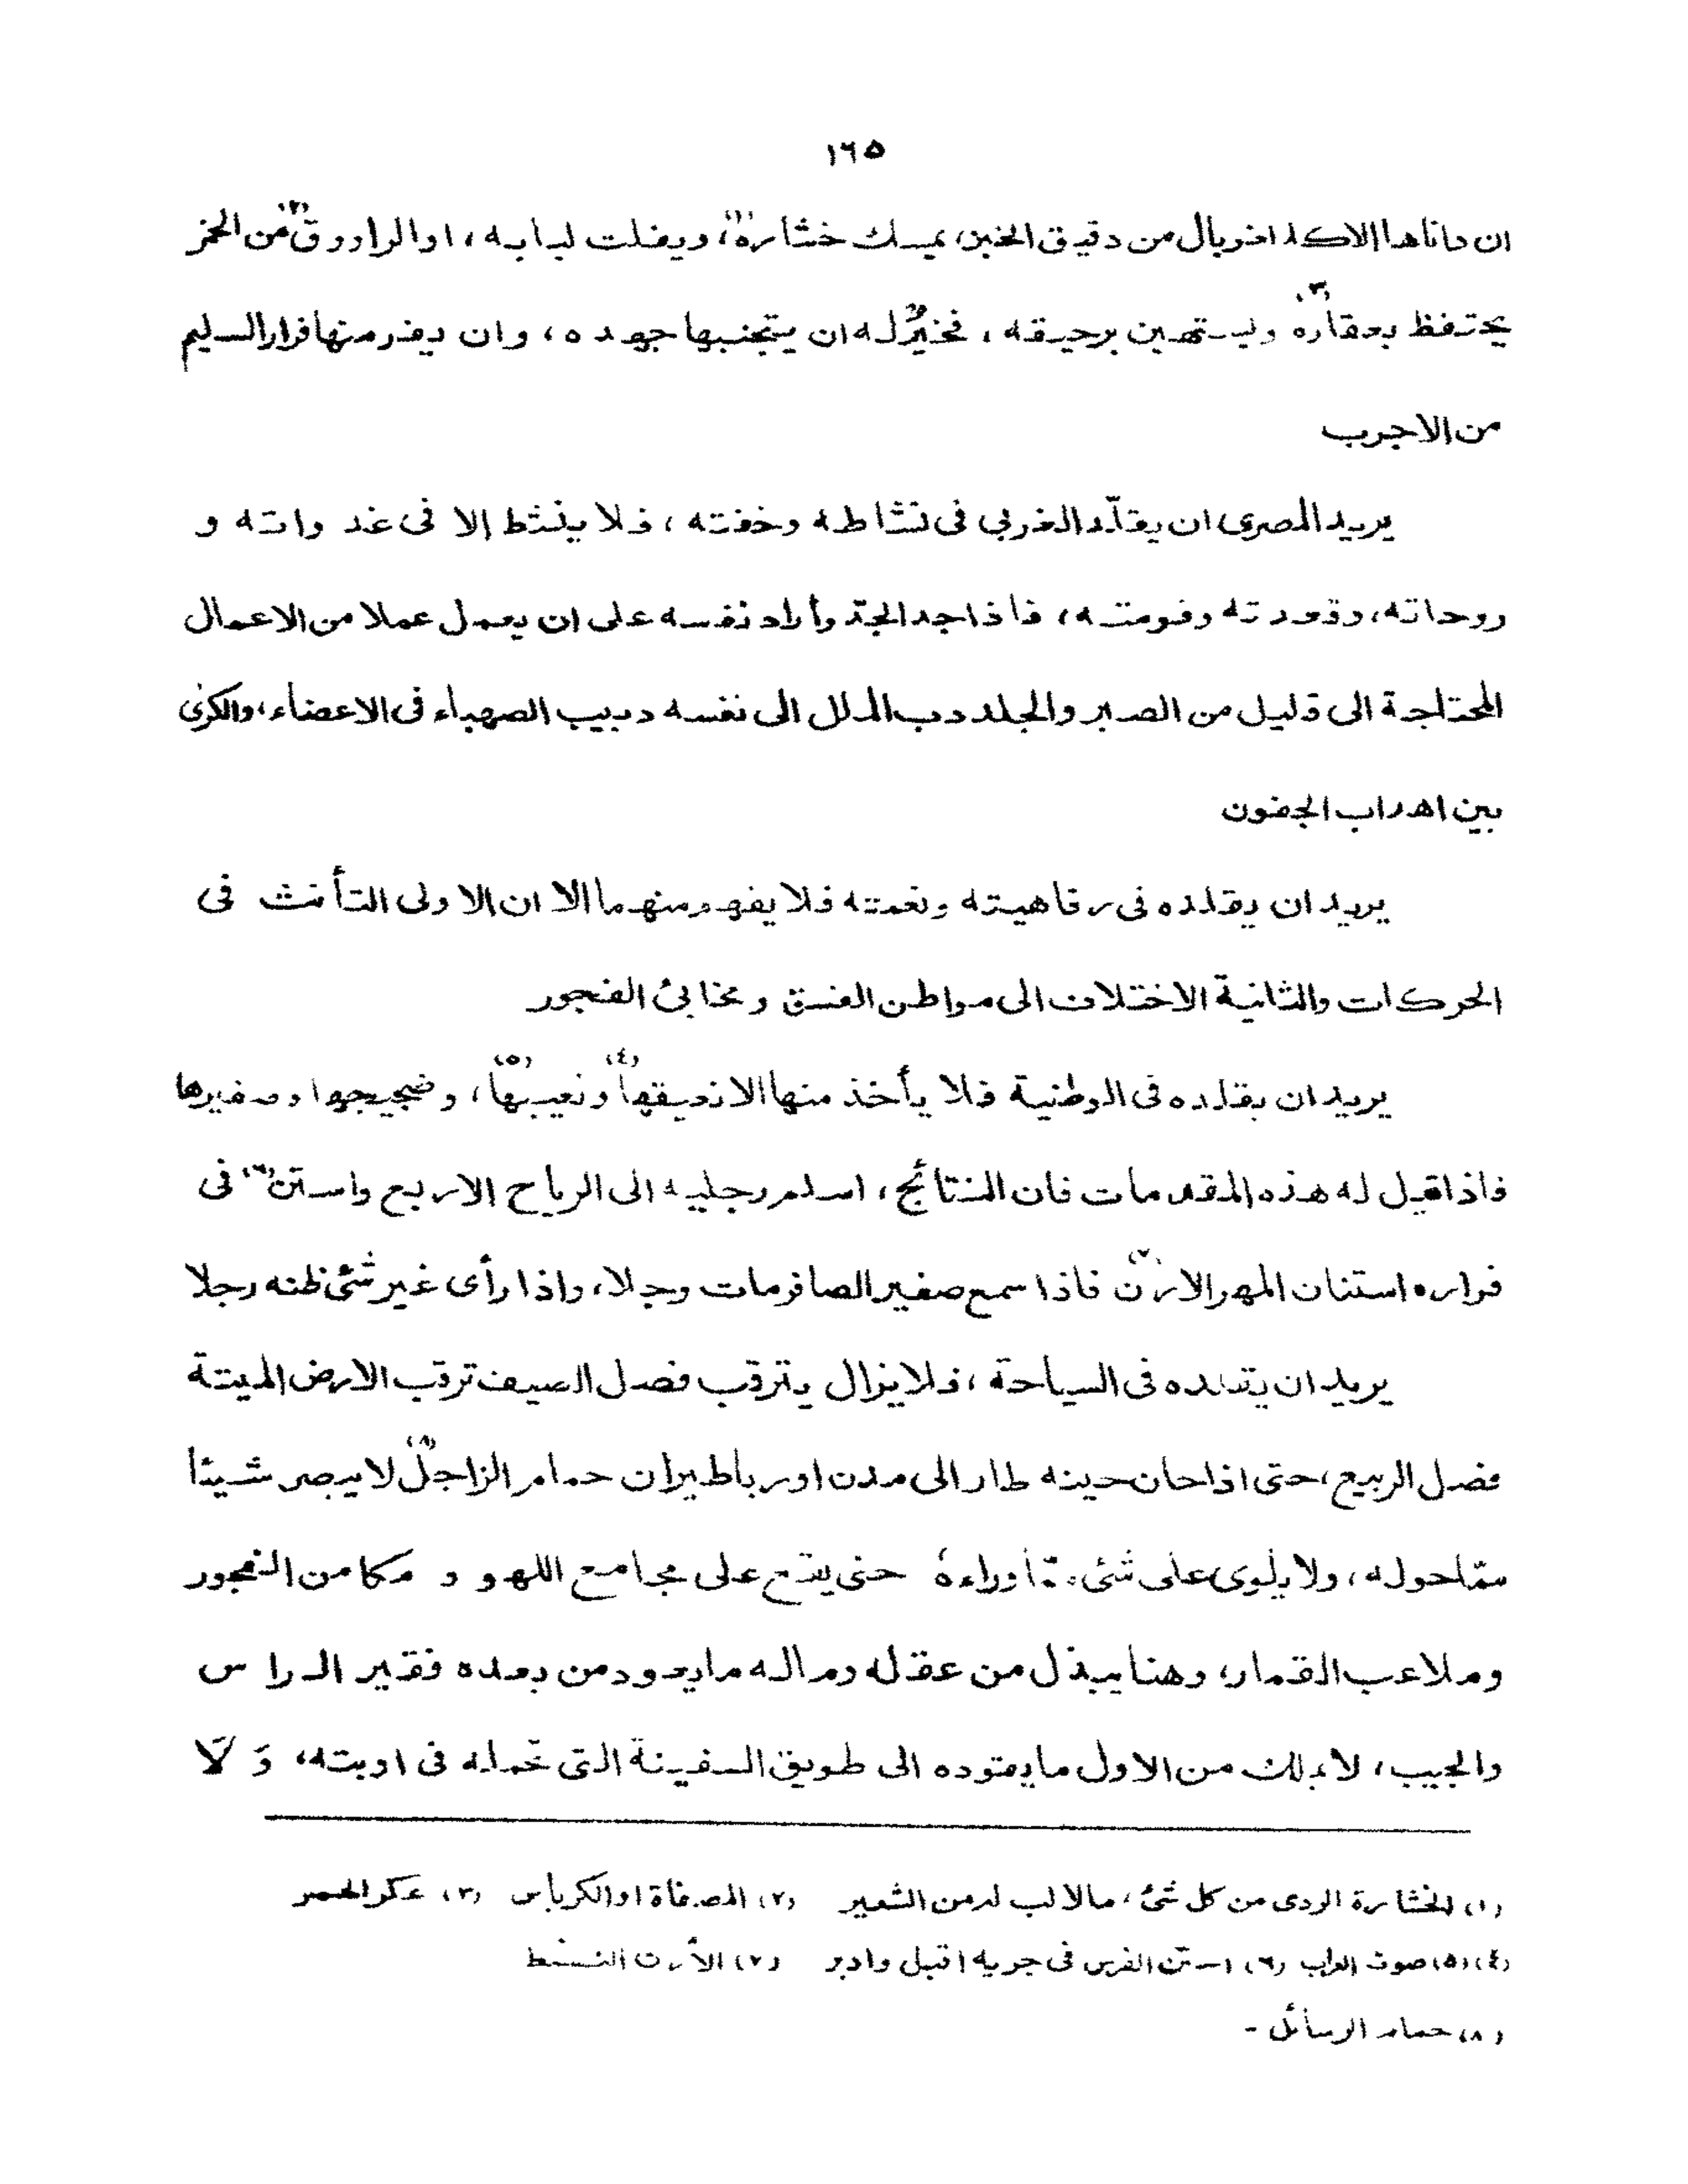 ١٦٥
ان داناها الا كالغربال من دقيق الخبز، يمسك خشارة(١)، ويفلت لبابه، او الراووق(٢) من الخمر
يحتفظ بعقاره(٣) ويستهين برحيقه، فخيرٌ له ان يتجنبها جهده، وان يفر منها فرار السليم
من الاجرب
يريد المصرى ان يقلّد الغربي فى نشاطه وخفته، فلا ينشط إلا فى غدواته و
روحاته، وقعدته وقومته، فاذا جد الجدّ وأراد نفسه على ان يعمل عملا من الاعمال
المحتاجة الى قليل من الصبر والجلد دب الملل الى نفسه دبيب الصهباء فى الاعضاء، والكرى
بين اهداب الجفون
يريد ان يقلده فى رفاهيته ونعمته فلا يفهم منهما الا ان الاولى التأنث فى
الحركات والثانية الاختلاف الى مواطن الفسق ومخابئ الفجور
يريد ان يقلده فى الوطنية فلا يأخذ منها الا نعيقها(٤) ونعيبها(٥)، وضجيجها وصفيرها
فاذا قيل له هذه المقدمات فان النتائج، اسلم رجليه الى الرياح الاربع واستن(٦) فى
فراره استنان المهر الارن(٧) فاذا سمع صفير الصافر مات وجلا، واذا رأى غير شئ ظنه رجلا
يريد ان يقلده فى السياحة، فلا يزال يترقب فصل الصيف ترقب الارض الميتة
فصل الربيع، حتى اذا حان حينه طار الى مدن اوربا طيران حمام الزاجل(٨) لا يبصر شيئا
ممّا حوله، ولا يلوى على شئ ممّا وراءه حتى يقع على مجامع اللهو و مكامن الفجور
وملاعب القمار، وهنا يبذل من عقله وماله ما يعود من بعده فقير الراس
والجيب، لا يملك من الاول ما يقوده الى طريق السفينة التى تحمله فى اوبته، وَ لَا
(١) الخشارة الردى من كل شئ، مالا لب له من الشعير (٢) المصفاة او الكرباس (٣) عكر الخمر
(٤)(٥) صوت الغراب (٦) استن الفرس فى جريه اقبل وادبر (٧) الأرن النشط
(٨) حمام الرسائل -